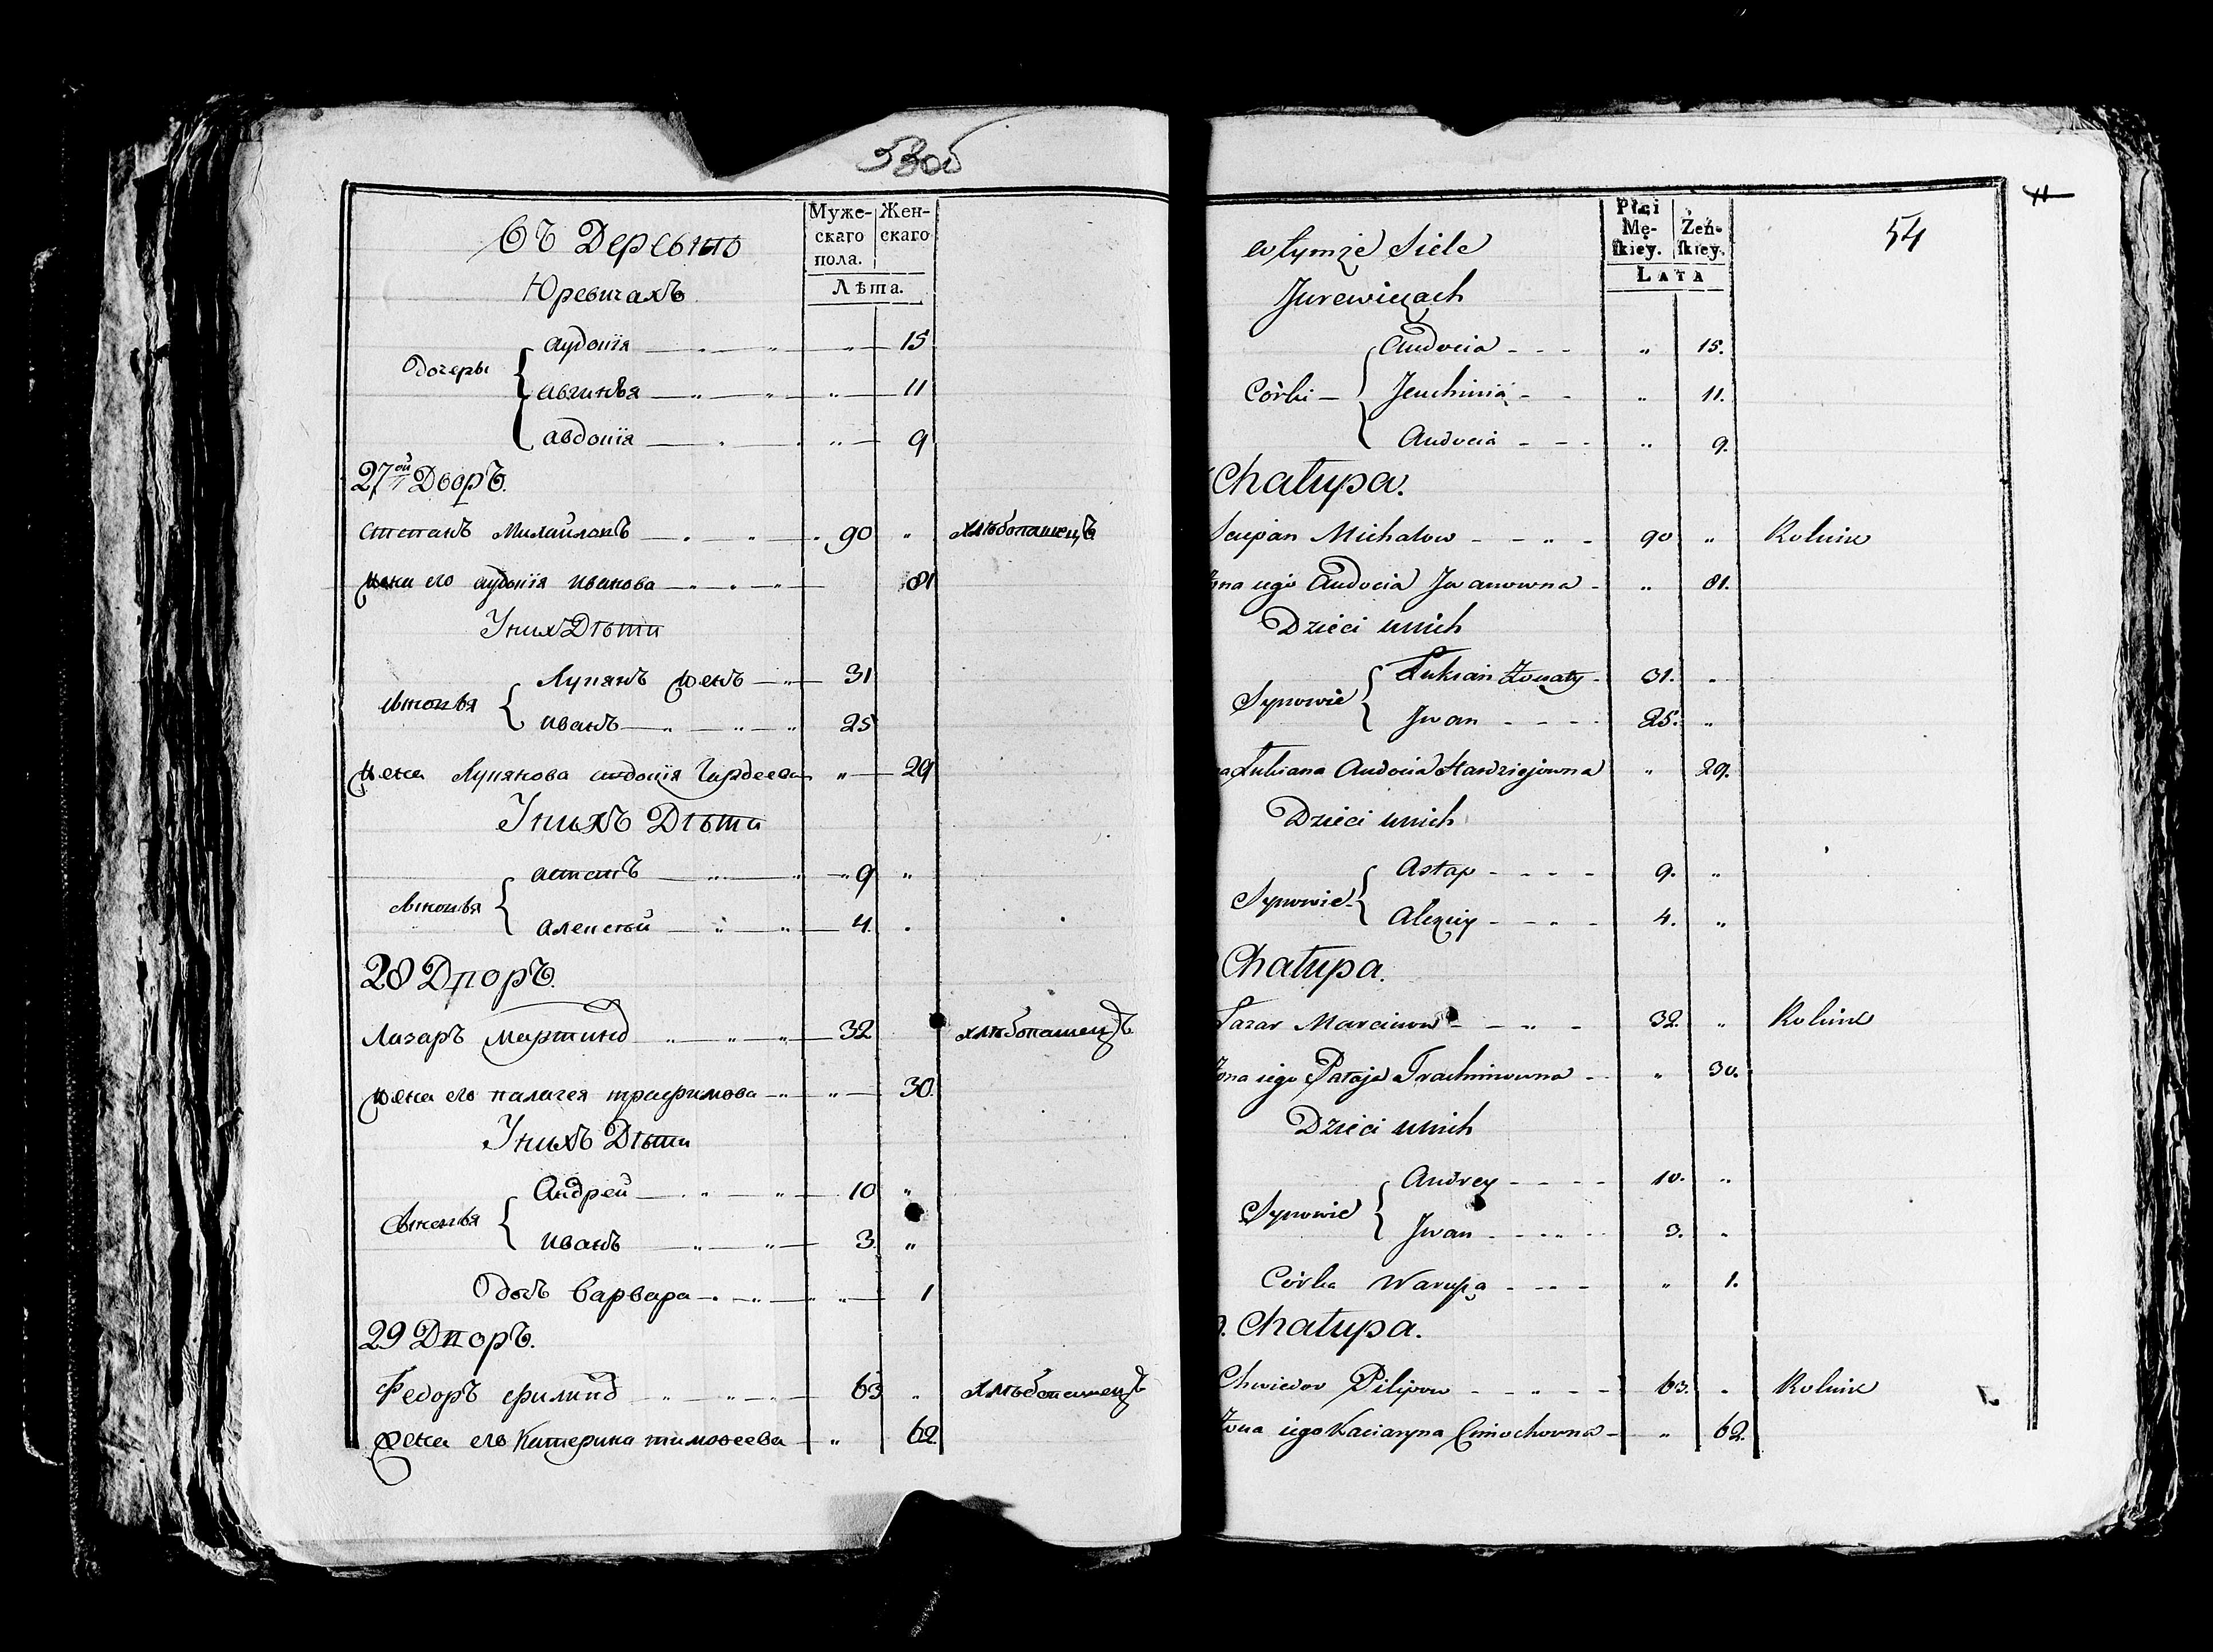 53об
Въ Деревнѣ
Юревичахъ
Муже-скаго пола. Жен-скаго
Лѣта.
Дочеры
аудоція — " — 15
авгинья — " — 11
авдоція — " — 9
27ой Дворъ.
степанъ Михайловъ — 90 " хлѣбопашецъ
жена его аудоція иванова — 81
У нихъ Дѣти
сыновья
Лукянъ женъ — 31
иванъ — 25
жена Лукянова авдоція Гардеева " — 29
У нихъ Дѣти
сыновья
астапъ — 9 "
алексѣй — 4 "
28 Дворъ.
Лазаръ мартинов — 32 хлѣбопашецъ
жена его палагея трафимова — " — 30.
У нихъ Дѣти
сыновья
Андрей — 10 "
иванъ — 3. "
Дочь варвара — " — 1
29 Дворъ.
Федоръ филипов — 63 " хлѣбопашецъ
жена его Катерина тимофеева — " 62.
54
w tymże Siele
Jurewiczach
Płci Mę-ſkiey. Żeń-ſkiey.
LATA
Córki —
Audocia - - - " 15.
Jeuchinia - - " 11.
Audocia - - - " 9.
Chałupa.
Sciepan Michałow - - " - 90 " Rolnik
Żona iego Audocia Jwanowna - " 81.
Dzieci unich
Synowie
Łukian Żonaty - 31. "
Jwan - - - - 25. "
Łukiana Audocia Hardziejowna " 29.
Dzieci unich
Synowie
Astap - - - - 9. "
Alexiey - - - - 4. "
Chałupa.
Łazar Marcinow - - " - 32. " Rolnik
Żona iego Pałaja Trachimowna - " 30.
Dzieci unich
Synowie
Andrey - - - - 10. "
Jwan - - - - 3. "
Córka Warupa - - - " 1.
Chałupa.
Chwiedor Pilipow - - " - - 63. " Rolnik
Żona iego Kaciaryna Cimochowna - " 62.